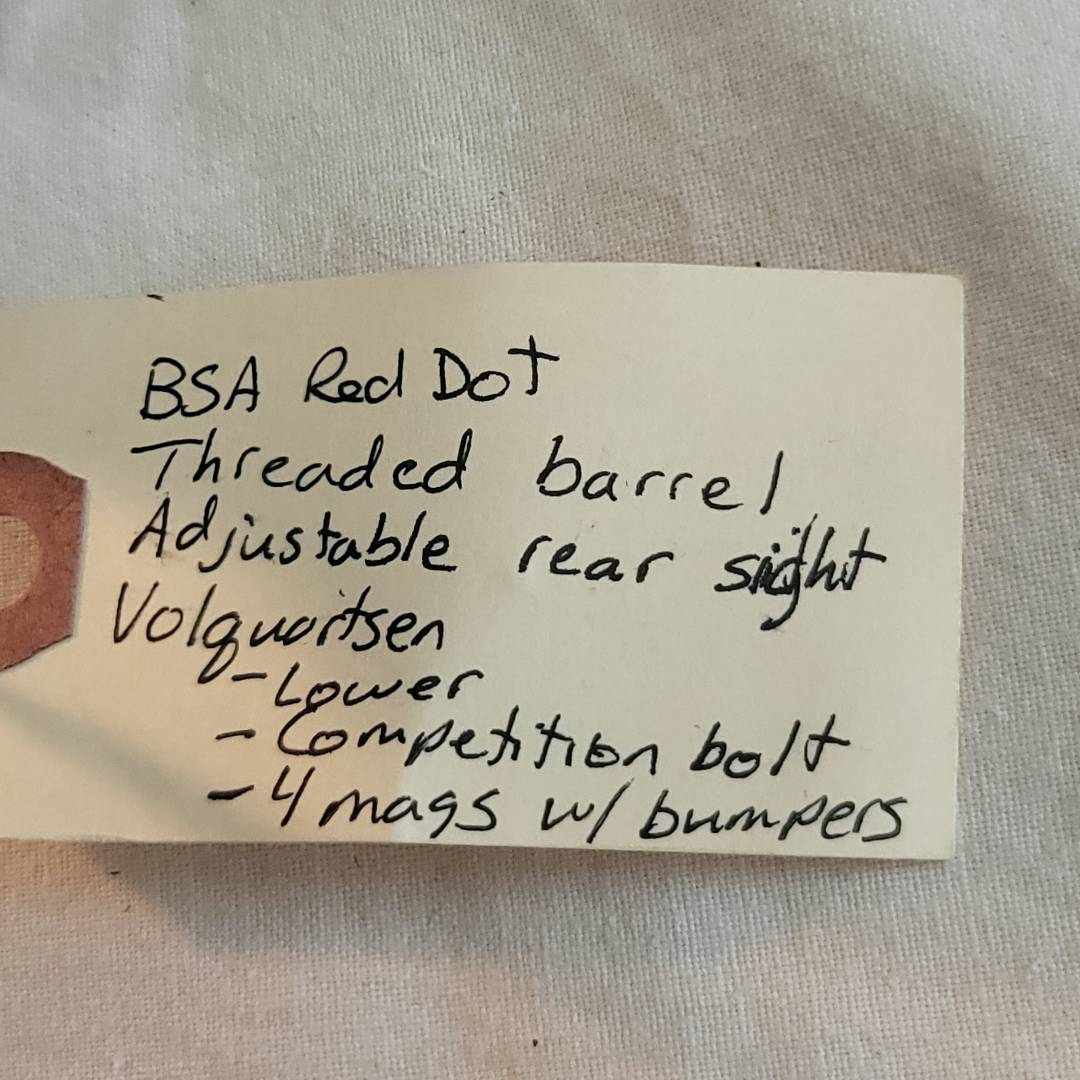 BSA Red Dot
Threaded barrel
Adjustable rear sight
Volquartsen
- Lower
- Competition bolt
- 4 mags w/ bumpers